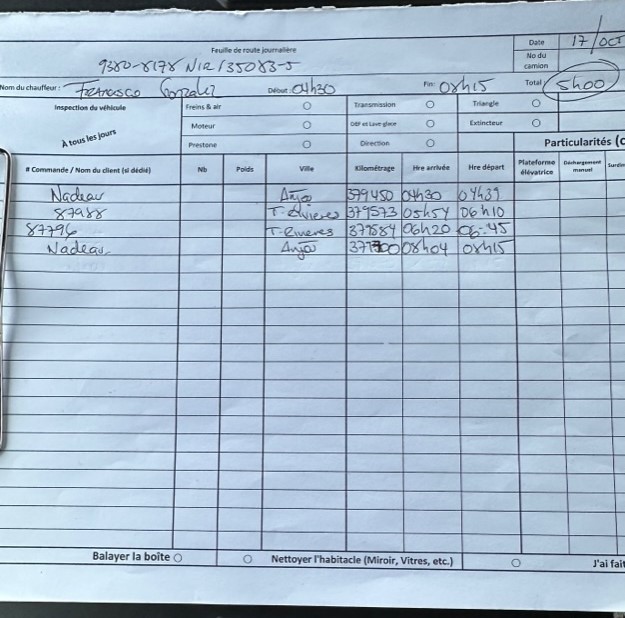 Feuille de route journalière
Date 17/OCT
No du camion
9380-8178 NIR 135083-5
Nom du chauffeur: Francisco Gonzalez Début: 04h30 Fin: 08h15 Total 5h00
Inspection du véhicule Freins & air Transmission Triangle
À tous les jours Moteur DEF et Lave glace Extincteur
Prestone Direction Particularités (c
# Commande / Nom du client (si dédié) Nb Poids Ville Kilométrage Hre arrivée Hre départ Plateforme élévatrice Déchargement manuel
Nadeau Anjou 379450 04h30 04h39
87988 T-Rivieres 379573 05h54 06h10
87796 T-Rivieres 06h20 06:45
Nadeau Anjou 08h04 08h15
Balayer la boîte Nettoyer l'habitacle (Miroir, Vitres, etc.) J'ai fait